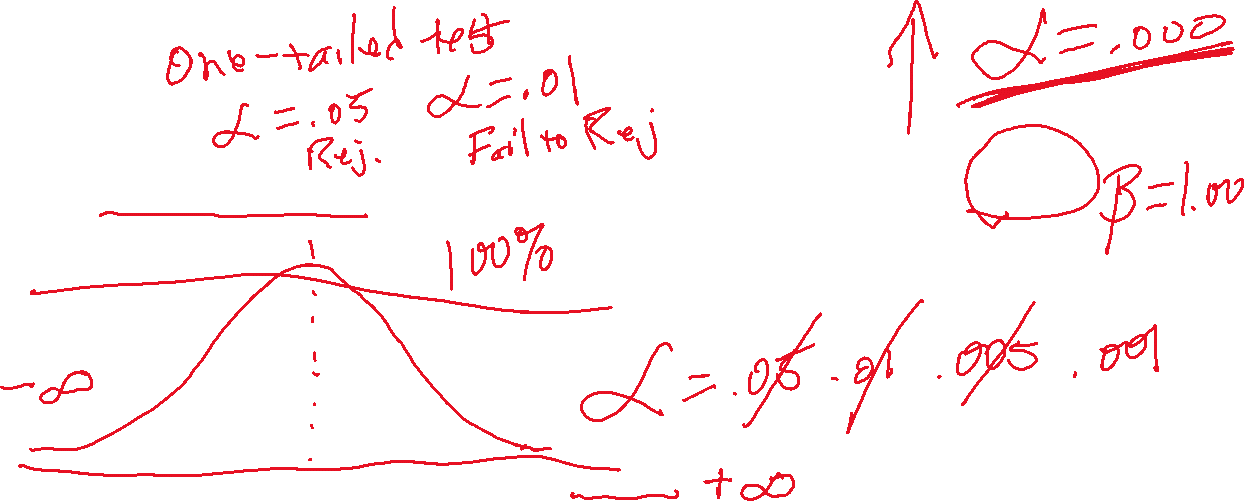 One-tailed test
α=.05 α=.01
Rej. Fail to Rej
α=.000
β=1.00
100%
-∞
α=.05 .01 .005 .001
+∞